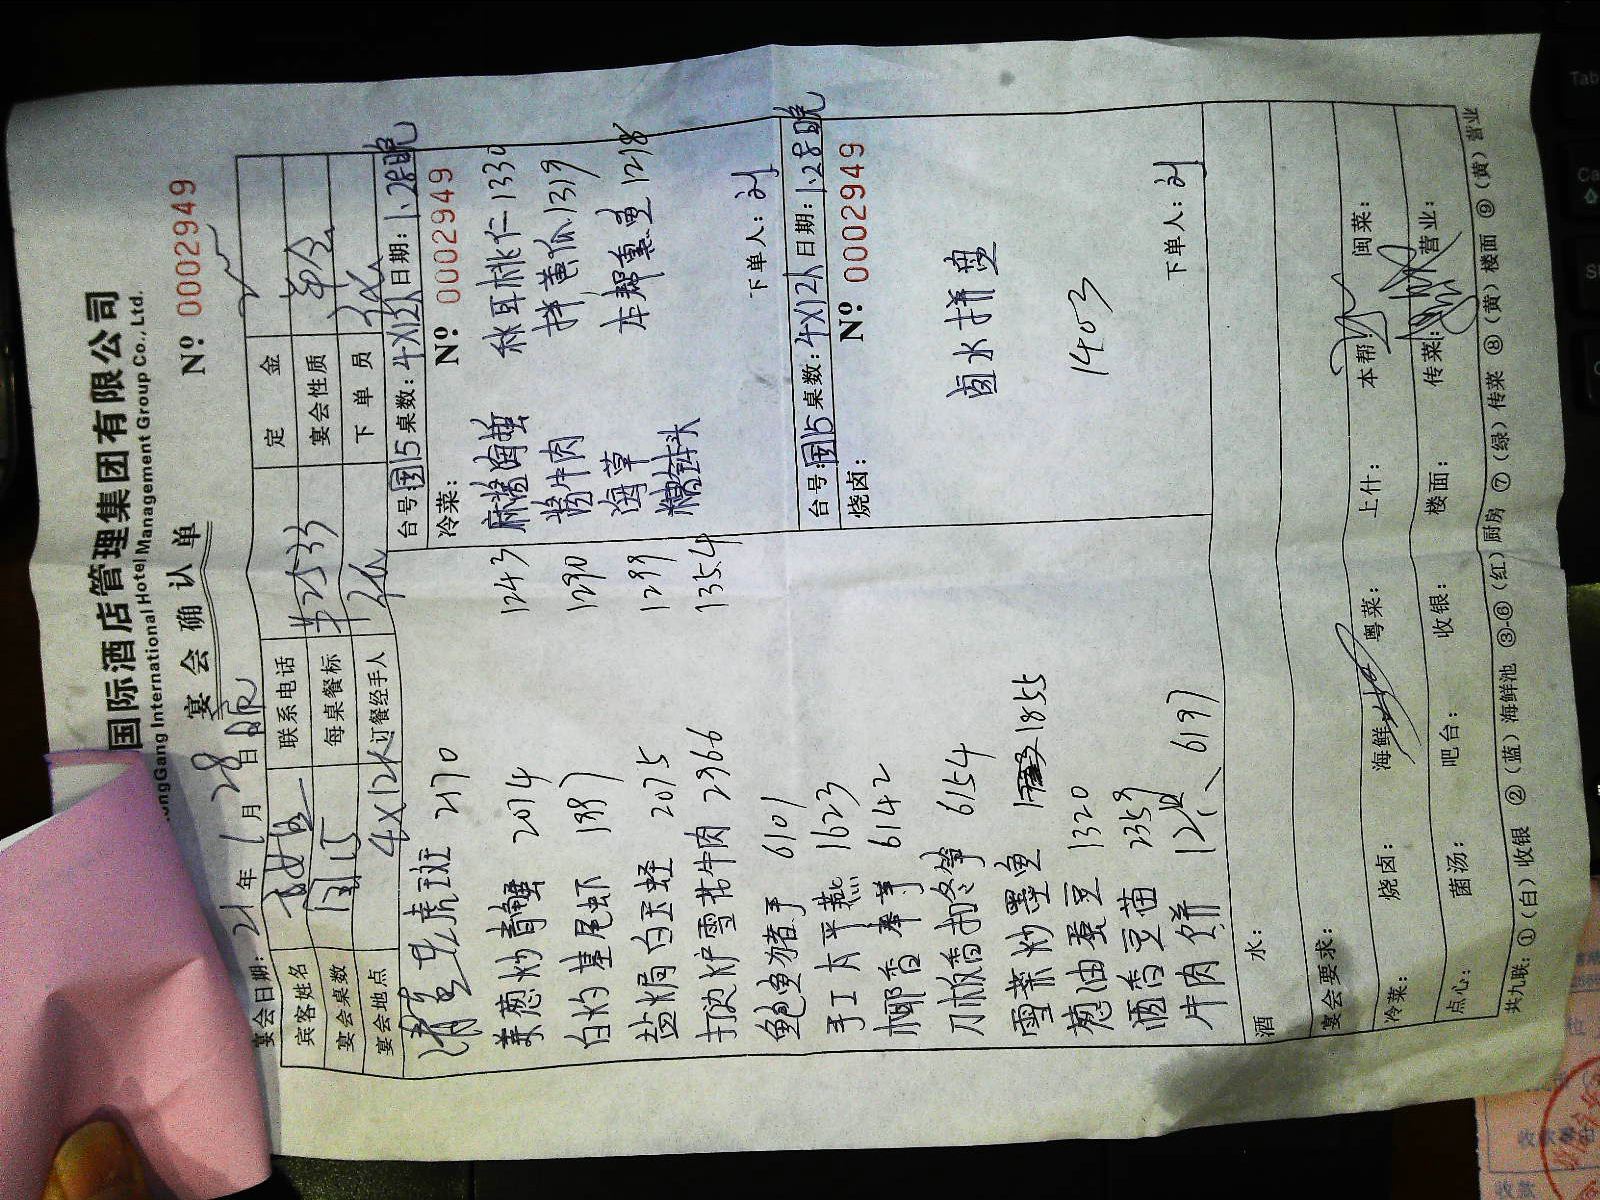 国际酒店管理集团有限公司
ongGang International Hotel Management Group Co., Ltd.
宴会确认单
Nº 0002949
宴会日期: 21年1月28日
宾客姓名 联系电话 定金
宴会桌数 每桌餐标 宴会性质 单会
宴会地点 4×12人 订餐经手人 下单员
台号:国15 桌数:4×12人 日期:1.28晚
冷菜: Nº 0002949
麻酱海蜇 1243 秋耳桃仁 1330
酱牛肉 1290 拌黄瓜 1319
海草 1299 本帮熏鱼 1218
糟钵头 1354
下单人:刘
台号:国15 桌数:4×12人 日期:1.28晚
烧卤: Nº 0002949
卤水拼盘
1403
下单人:刘
清蒸老虎斑 2170
姜葱炒青蟹 2014
白灼基尾虾 1997
盐焗白玉蛏 2075
打边炉雪花牛肉 2966
鲍鱼猪手 6101
手工太平燕 1623
椰香奉芋 6142
刀板香扣冬笋 6154
雪菜炒墨鱼 1855
葱油蚕豆 1320
酒香豆苗 2359
牛肉饼 12个 6197
酒水:
宴会要求:
冷菜: 烧卤: 海鲜: 粤菜: 上什: 本帮: 闽菜:
点心: 菌汤: 吧台: 收银: 楼面: 传菜: 营业:
共九联: ①(白)收银 ②(蓝)海鲜池 ③-⑥(红)厨房 ⑦(绿)传菜 ⑧(黄)楼面 ⑨(黄)营业
Tab